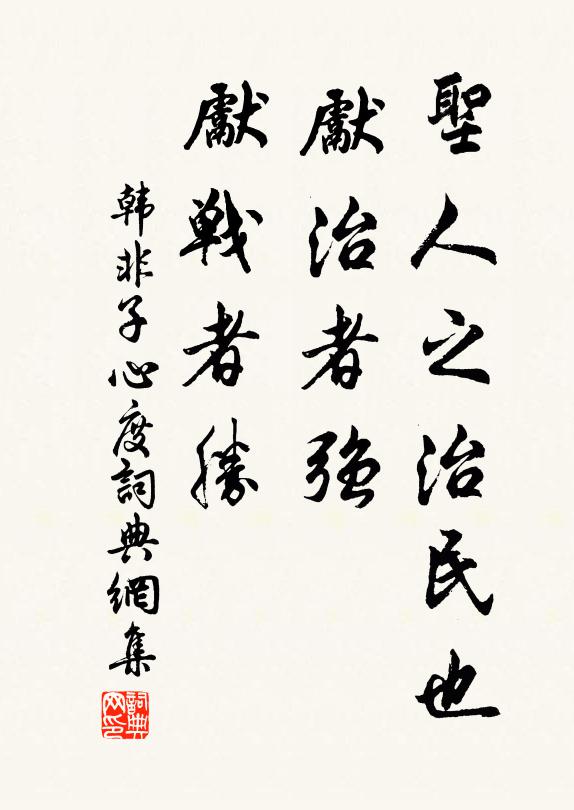 聖人之治民也
獻治者强
獻戰者勝
韩非子心度詞典網集
詞典
网印